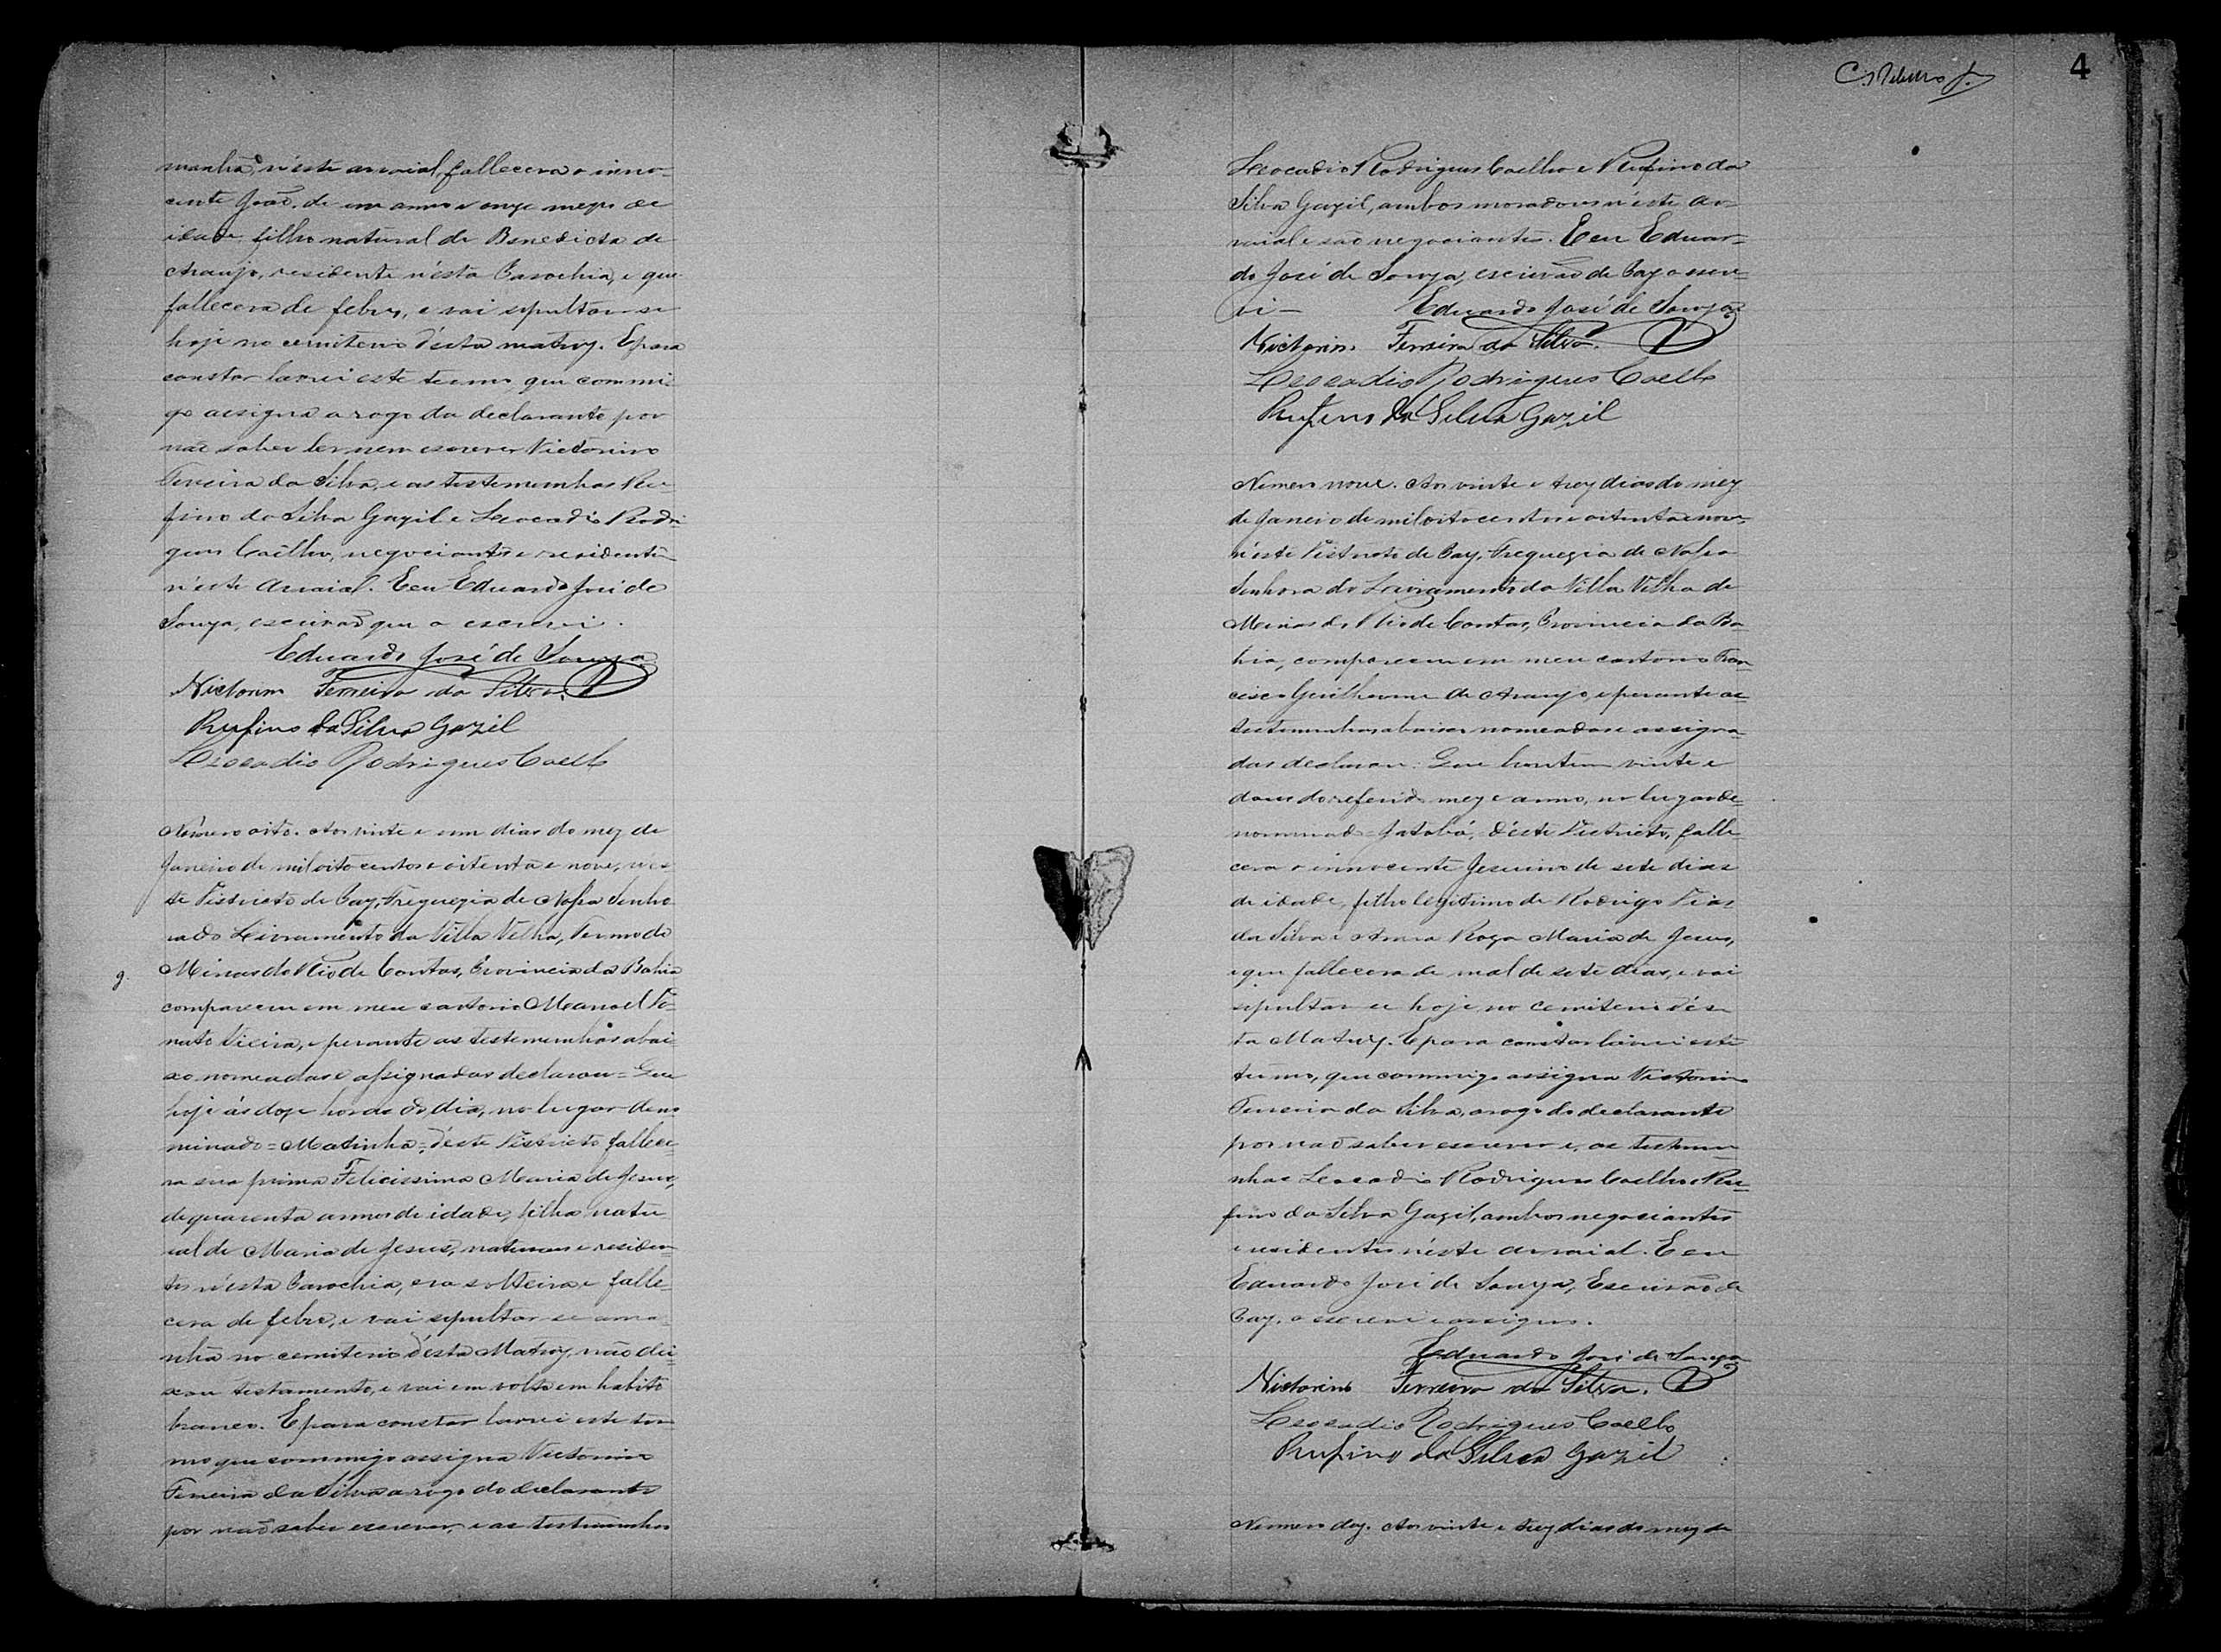 manhã, n'este arraial, fallecera o inno-
cente João, de um anno e onze mezes de
idade, filho natural de Benedicta de
Araujo, residente n'esta Parochia, e que
fallecera de febre, e vai sepultar-se
hoje no cemiterio d'esta matriz. E para
constar lavrei este termo, que commi-
go assigna a rogo da declarante por
não saber ler nem escrever Victorino
Ferreira da Silva, e as testemunhas Ru-
fino da Silva Gazil e Leocadio Rodri-
gues Coelho, negociantes e residentes
n'este Arraial. E eu Eduardo José de
Souza, escrivão que o escrevi.
Eduardo José de Souza
Victorino Ferreira da Silva.
Rufino da Silva Gazil
Leocadio Rodrigues Coelho
Numero oito. Aos vinte e um dias do mez de
Janeiro de mil oito centos e oitenta e nove, n'es-
te Districto de Paz, Freguezia de Nossa Senho-
ra do Livramento da Villa Velha, Termo de
g. Minas do Rio de Contas, Provincia da Bahia
compareceu em meu cartorio Manoel Do-
nato Vieira, e perante as testemunhas abai-
xo nomeadas e assignadas declarou = Que
hoje ás doze horas do dia, no lugar deno
minado = Matinha = d'este Districto fallece-
ra sua prima Felicissima Maria de Jesus,
de quarenta annos de idade, filha natu-
ral de Maria de Jesus, naturaes e residen-
tes n'esta Parochia, era solteira e falle-
cera de febre, e vai sepultar-se ama-
nhã no cemiterio d'esta Matriz, não dei-
xou testamento, e vai em volta em habito
branco. E para constar lavrei este ter-
mo que commigo assigna Victorino
Ferreira da Silva a rogo do declarante
por não saber escrever, e as testemunhas
C. Ribeiro Jr. 4
Leocadio Rodrigues Coelho e Rufino da
Silva Gazil, ambos moradores n'este Ar-
raial e são negociantes. E eu Eduar-
do José de Souza, escrivão de Paz o escre-
vi - Eduardo José de Souza
Victorino Ferreira da Silva.
Leocadio Rodrigues Coelho
Rufino da Silva Gazil
Numero nove. Aos vinte e trez dias do mez
de Janeiro de mil oito centos e oitenta e nove,
n'este Districto de Paz, Freguezia de Nossa
Senhora do Livramento da Villa Velha de
Minas do Rio de Contas, Provincia da Ba-
hia, compareceu em meu cartorio Fran
cisco Guilherme de Araujo, e perante as
testemunhas abaixo nomeadas e assigna-
das declarou: Que hontem vinte e
dous do referido mez e anno, no lugar de-
nominado Jatobá, d'este Districto, falle-
cera o innocente Jesuino de sete dias
de idade, filho legitimo de Rodrigo Dias
da Silva e Anna Roza Maria de Jesus,
e que fallecera de mal de sete dias, e vai
sepultar-se hoje no cemiterio d'es-
ta Matriz. E para constar lavrei este
termo, que commigo assigna Victorino
Ferreira da Silva, a rogo do declarante
por não saber escrever e, as testemu-
nhas Leocadio Rodrigues Coelho e Ru-
fino da Silva Gazil, ambos negociantes
e residentes n'este arraial. E eu
Eduardo José de Souza, Escrivão de
Paz, o escrevi e assigno.
Eduardo José de Souza
Victorino Ferreira da Silva.
Leocadio Rodrigues Coelho
Rufino da Silva Gazil
Numero dez. Aos vinte e trez dias do mez de